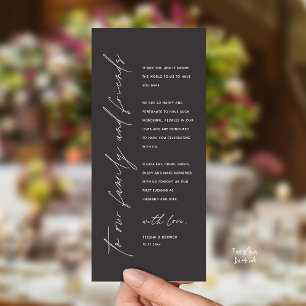 to our family and friends
THANK YOU AND IT MEANS
THE WORLD TO US TO HAVE
YOU HERE.
WE ARE SO HAPPY AND
FORTUNATE TO HAVE SUCH
WONDERFUL PEOPLES IN OUR
LIVES AND ARE HONOURED
TO HAVE YOU CELEBRATING
WITH US.
PLEASE EAT, DRINK, DANCE,
ENJOY AND MAKE MEMORIES
WITH US TONIGHT AS OUR
FIRST EVENING AS
HUSBAND AND WIFE.
with love,
TEESHA & DERRICK
Teesha
Derrick